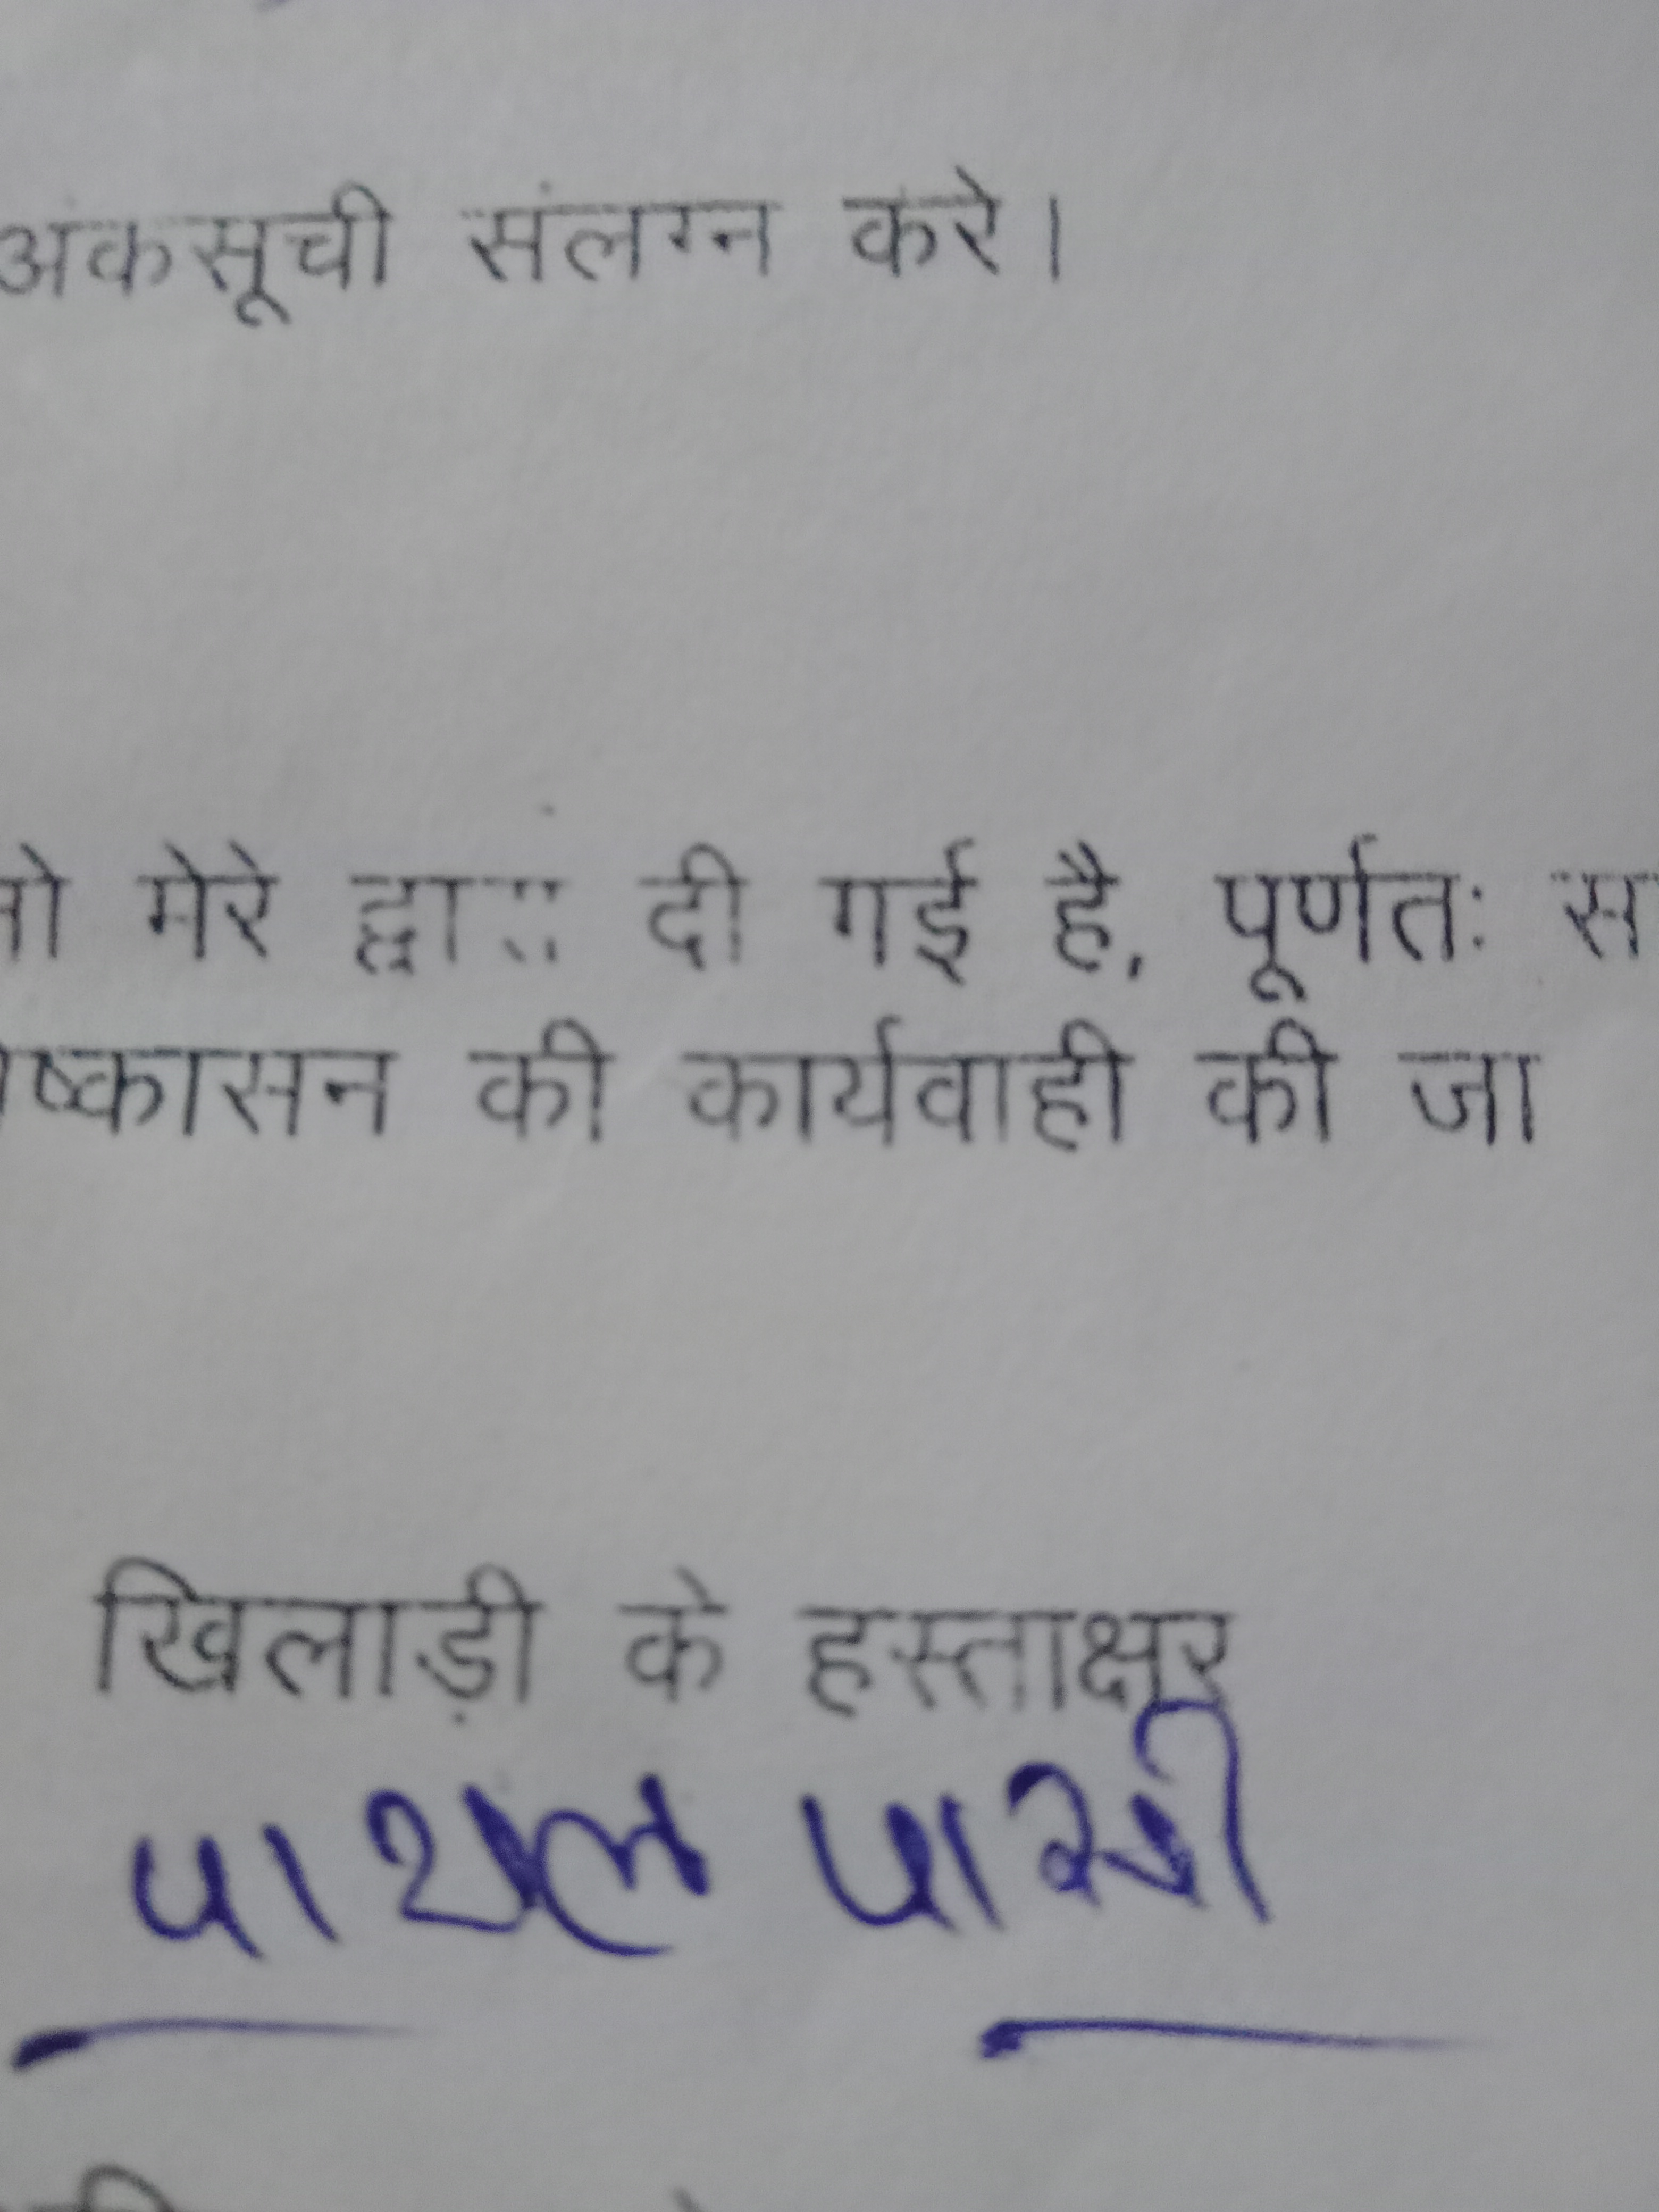 अंकसूची संलग्न करे।
मेरे द्वारा दी गई है, पूर्णतः
की कार्यवाही की जा
खिलाड़ी के हस्ताक्षर
पायल पासी